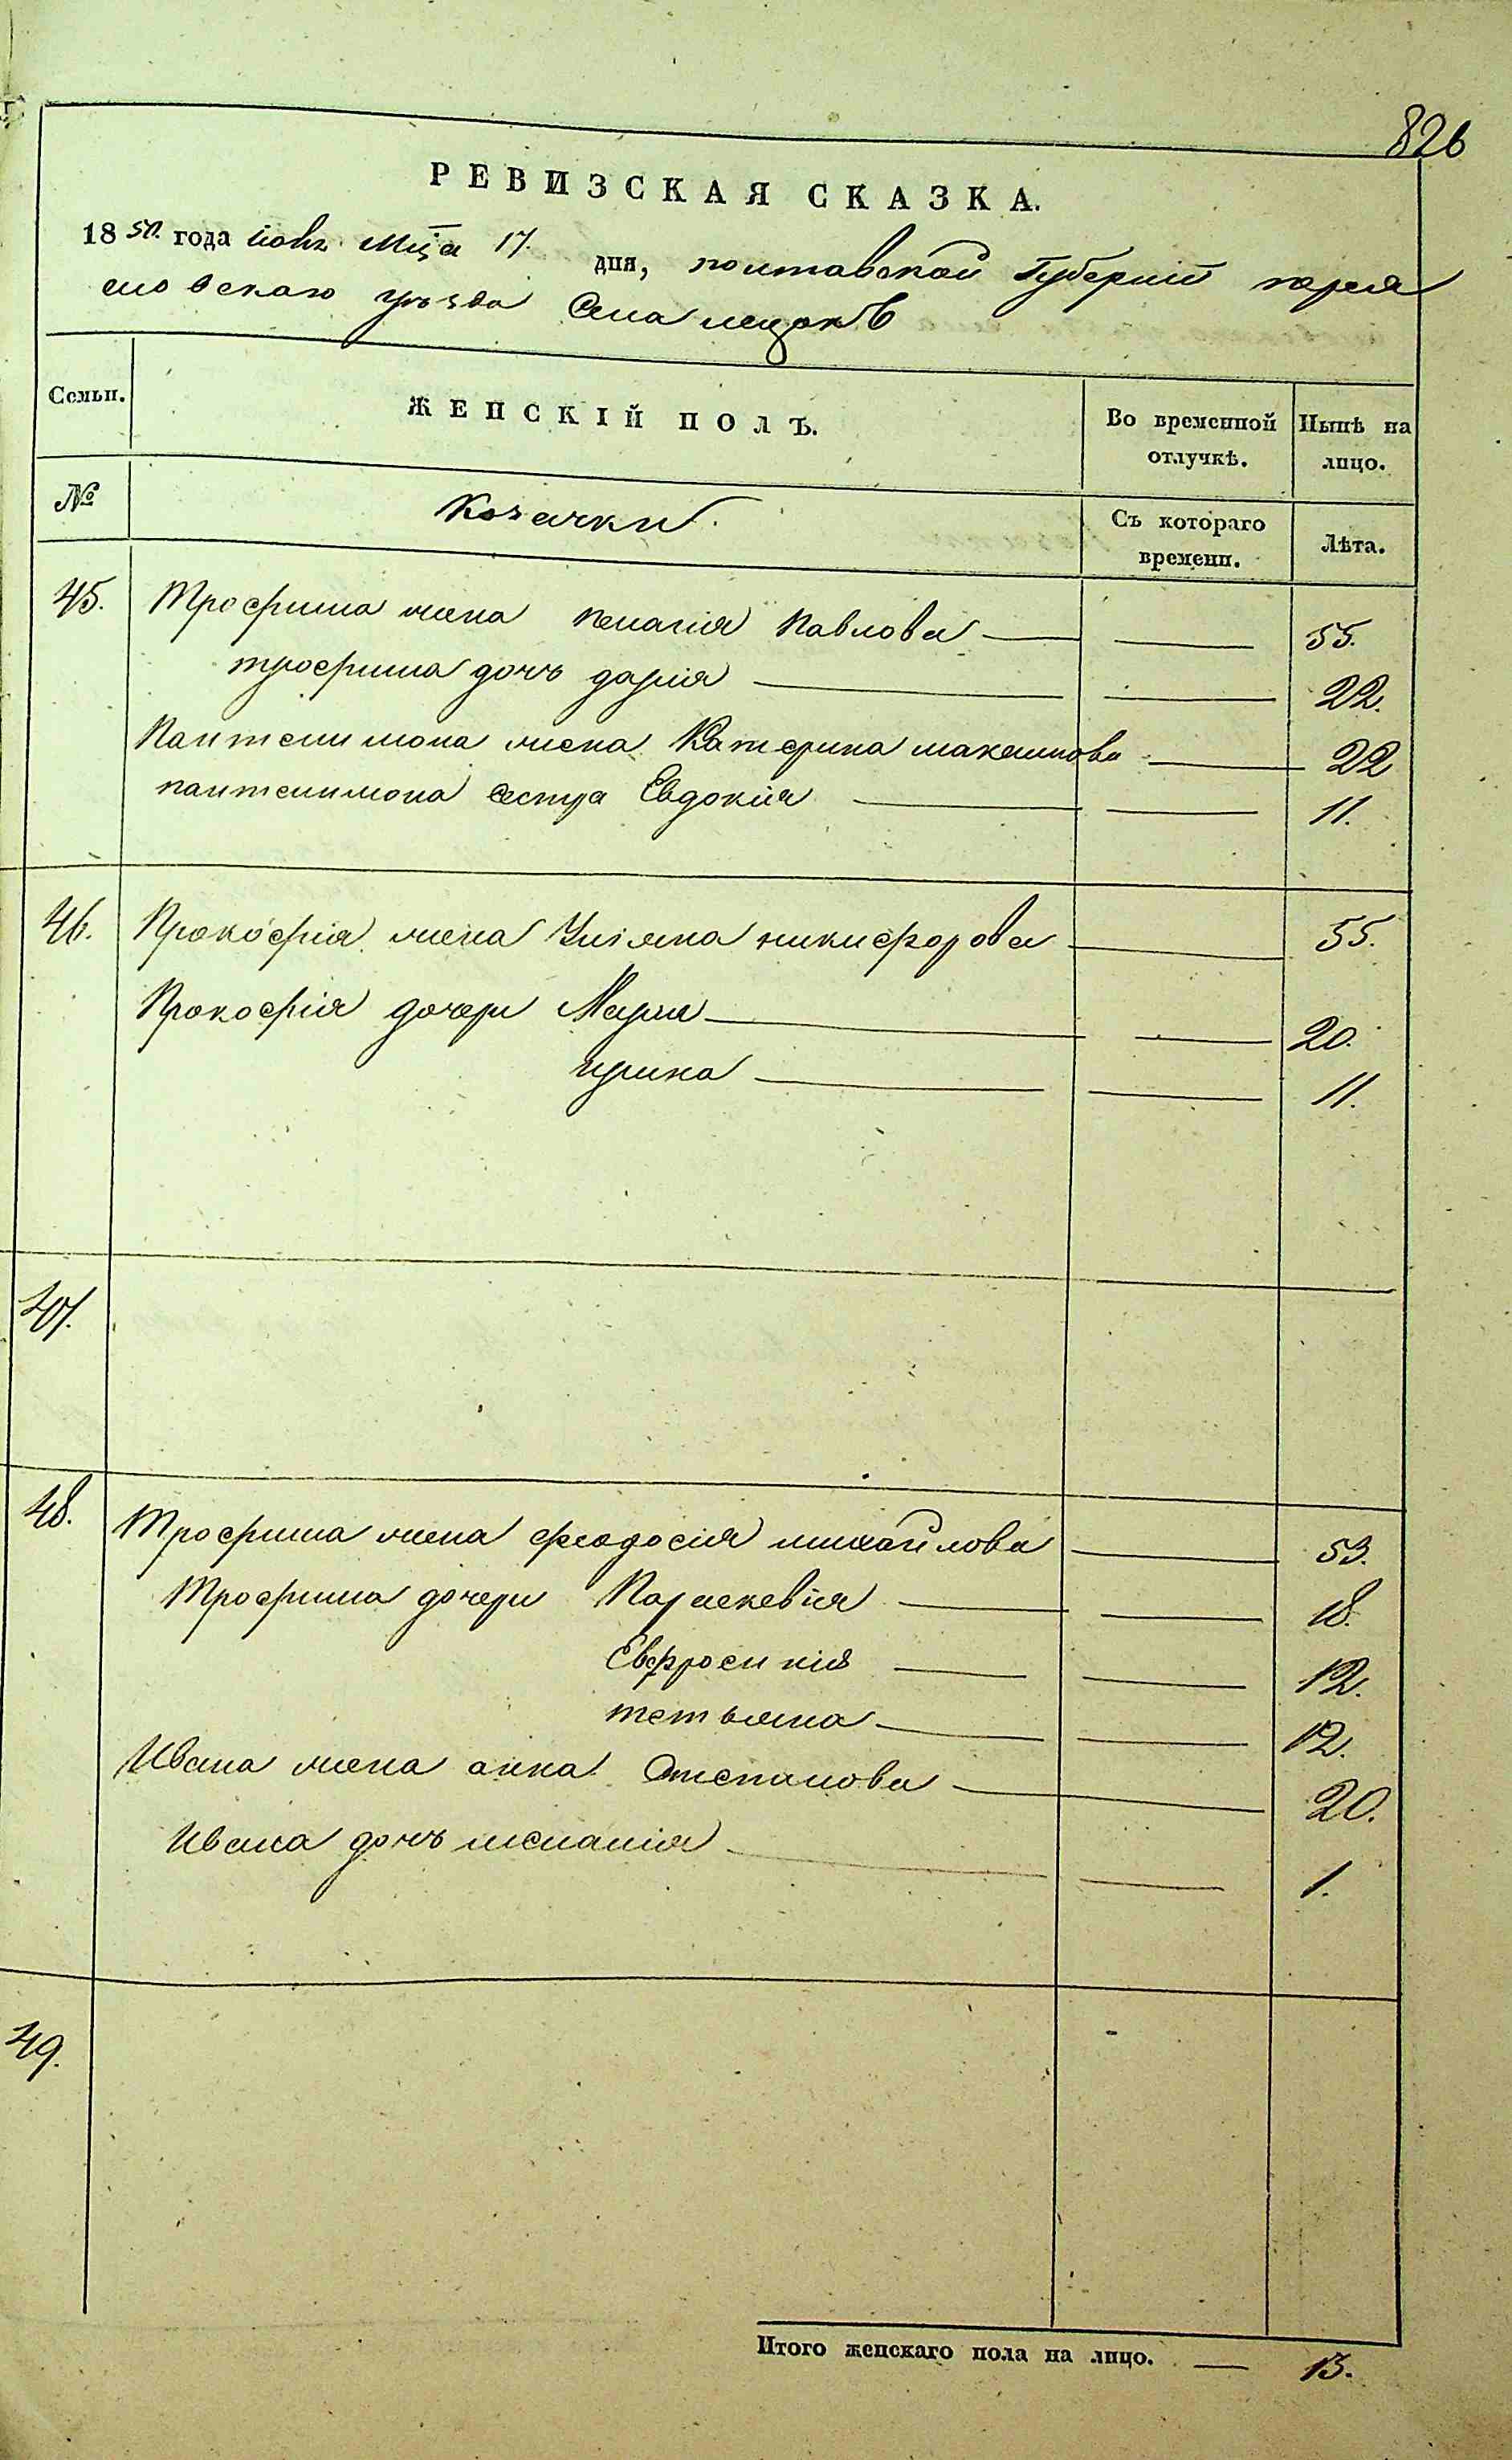 826
РЕВИЗСКАЯ СКАЗКА.
1850. года Мца 17. дня, полтавской Губерніи перея
словскаго уѣзда Села лецокъ
Семьи. ЖЕНСКІЙ ПОЛЪ. Во временной отлучкѣ. Нынѣ на лицо.
№ Козачки. Съ котораго времени. Лѣта.
45. Трофима жена пелагія Павлова — — 55.
трофима дочь дарія — — 22.
Пантелимона жена Катерина максимова — 22
пантелимона сестра Евдокія — — 11.
46. Прокофія жена Уліяна никифорова — 55.
Прокофія дочери Марія — — 20.
ирина — — 11.
47.
48. Трофима жена феодосія михайлова — 53.
Трофима дочери Параскевія — — 18.
Евфросинія — — 12.
тетьяна — — 12.
Ивана жена анна Степанова — 20.
Ивана дочь меланія — — 1.
49.
Итого женскаго пола на лицо. — 13.